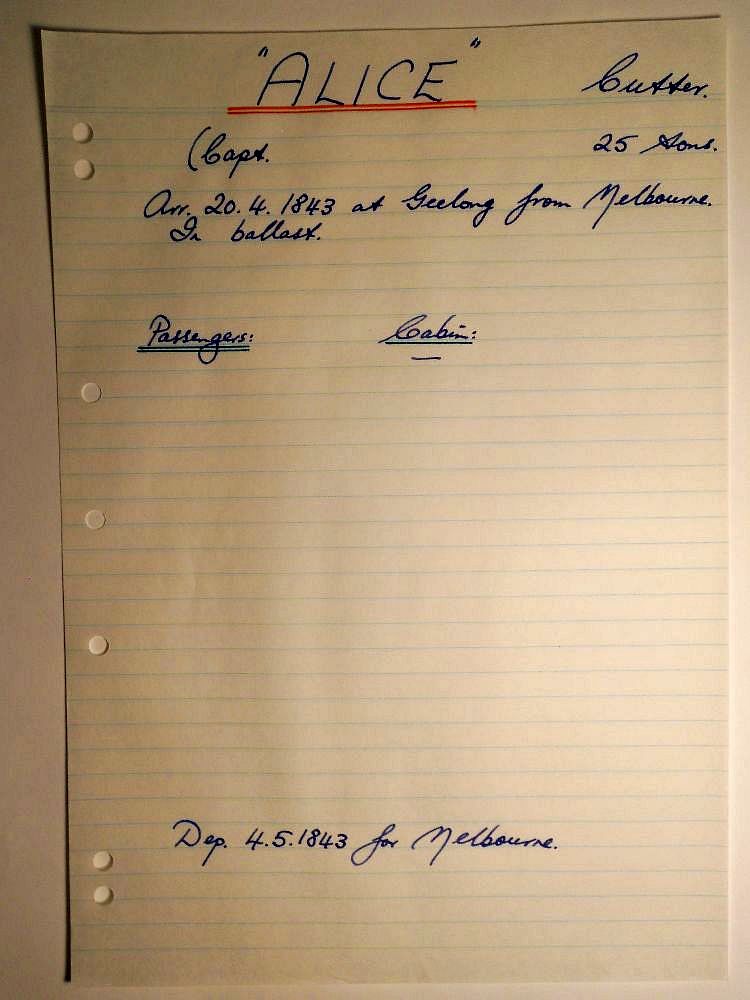 "ALICE" Cutter.
(Capt. 25 Tons.
Arr. 20.4.1843 at Geelong from Melbourne.
In ballast.
Passengers: Cabin:
—
Dep. 4.5.1843 for Melbourne.